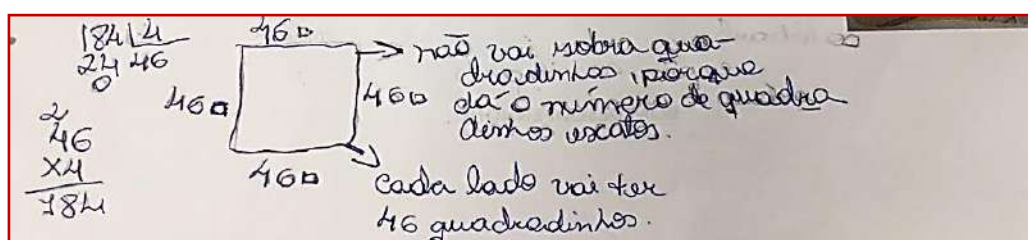 184 4
24 46
0
2
46
X4
184
46□
46□
46□
46□
não vai sobra qua-
dradinhos, porque
da o número de quadra
dinhos excatos.
cada lado vai ter
46 quadradinhos.